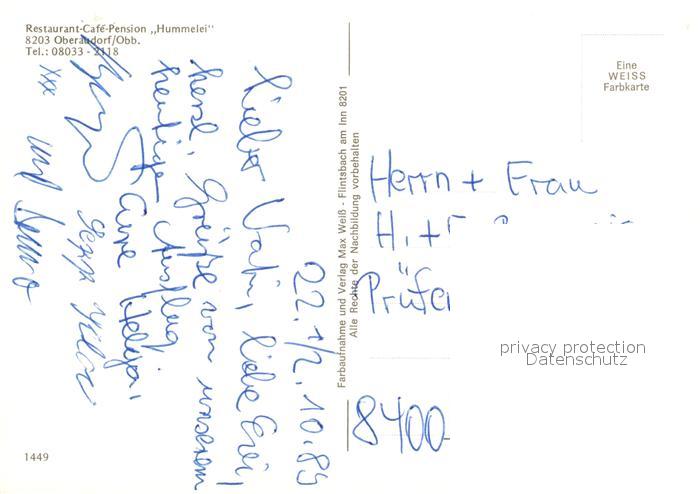 Restaurant-Café-Pension „Hummelei"
8203 Oberaudorf/Obb.
Tel.: 08033 - 2118
Eine
WEISS
Farbkarte
22.1/2.10.89
Lieber Vati, liebe
herzl. Grüße von unserem
heutigen Ausflug
Eure Helga,
Sepp
und
xxx
Farbaufnahme und Verlag Max Weiß - Flintsbach am Inn 8201
Alle Rechte der Nachbildung vorbehalten
Herrn + Frau
H. +
Prüfe
8400
privacy protection
Datenschutz
1449